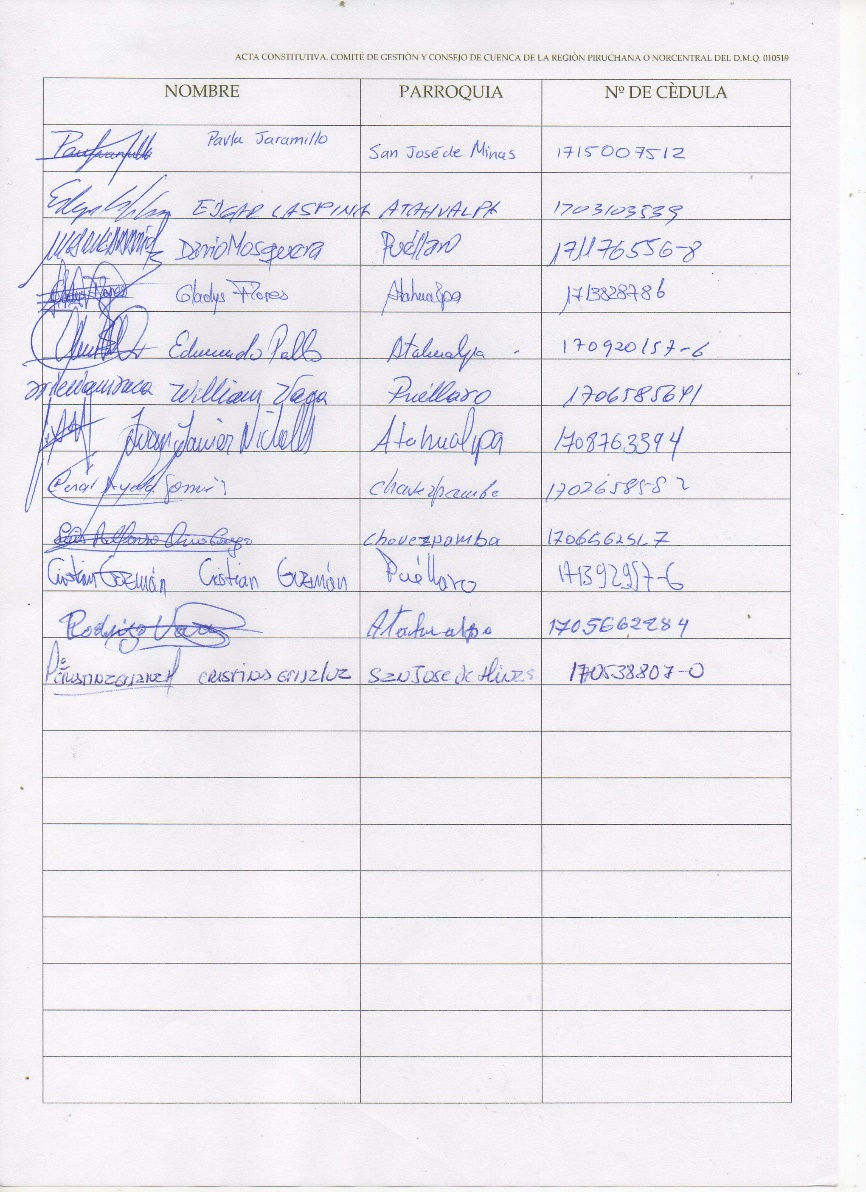 ACTA CONSTITUTIVA. COMITÉ DE GESTIÒN Y CONSEJO DE CUENCA DE LA REGIÒN PIRUCHANA O NORCENTRAL DEL D.M.Q. 010519
NOMBRE PARROQUIA Nº DE CÈDULA
Paula Jaramillo San José de Minas 1715007512
EDGAR LASPINA ATAHUALPA
Dario Mosquera Puéllaro 171176556-8
Gladys Flores Atahualpa 1713828786
Edmundo Pallo Atahualpa 170920157-6
William Vaga Puéllaro 1706585641
Ivan Javier Atahualpa 1708763394
Cesar Ayala Chavezpamba 170265858 2
Luis Alfonso Chavezpamba
Cristian Guzmán Cristian Guzmán Puéllaro 171392957-6
Rodrigo Atahualpa 1705662284
San Jose de Minas 170538807-0